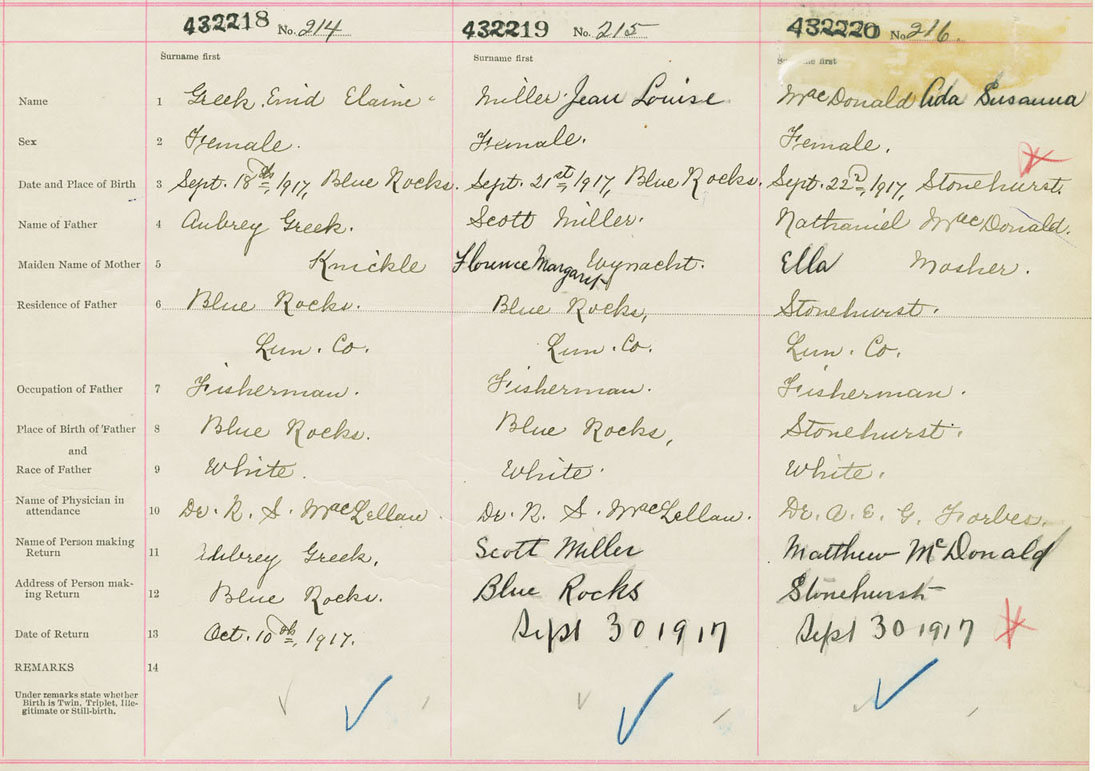 432218 No. 214 432219 No. 215 432220 No. 216.
Surname first Surname first Surname first
Name 1 Greek Enid Elaine Miller Jean Louise MacDonald Ada Susanna
Sex 2 Female. Female. Female.
Date and Place of Birth 3 Sept. 18th, 1917, Blue Rocks. Sept. 21st, 1917, Blue Rocks. Sept. 22d, 1917, Stonehurst.
Name of Father 4 Aubrey Greek. Scott Miller. Nathaniel MacDonald.
Maiden Name of Mother 5 Knickle Florence Margaret Evynacht. Ella Mosher.
Residence of Father 6 Blue Rocks. Blue Rocks, Stonehurst.
Lun. Co. Lun. Co. Lun. Co.
Occupation of Father 7 Fisherman. Fisherman. Fisherman.
Place of Birth of Father 8 Blue Rocks. Blue Rocks, Stonehurst.
and
Race of Father 9 White. White. White.
Name of Physician in
attendance 10 Dr. R. S. MacLellan Dr. R. S. MacLellan. Dr. A. E. G. Forbes.
Name of Person making
Return 11 Aubrey Greek. Scott Miller Matthew McDonald
Address of Person mak-
ing Return 12 Blue Rocks. Blue Rocks Stonehurst
Date of Return 13 Oct. 10th, 1917. Sept 30 1917 Sept 30 1917
REMARKS 14
Under remarks state whether
Birth is Twin, Triplet, Ille-
gitimate or Still-birth.